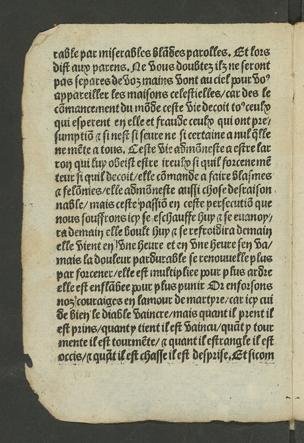 table par miserables blãdes parolles. Et lors
dist aux parens. Ne vous doubtez ilz ne seront
pas separes de voz mains vont au ciel pour vo⁹
appareiller les maisons celestielles/ car des le
cõmancement du mõde ceste vie decoit to⁹ ceulx
qui esperent en elle et fraude ceulx qui ont pre/
sumptiõ ⁊ si nest si seure ne si certaine a nul q̃lle
ne mẽte a tous. Ceste vie admõneste a estre lar
ron qui luy obeist estre ireulx si quil forcene mẽ
teur si quil decoit/ elle cõmande a faire blasmes
⁊ felõnies/ elle admõneste aussi chose desraison
nable/ mais ceste passiõ en ceste persecutiõ que
nous souffrons icy se eschauffe huy ⁊ se euanoy/
ra demain elle boult huy ⁊ se refroidira demain
elle vient en vne heure et en vne heure sen va/
mais la douleur pardurable se renouuelle plas
par forcener/ elle est multipliee pour plus ardre
elle est enflãbee pour plus punir Or enforsons
noz couraiges en lamour de martyre/ car icy cui
de bien le diable vaincre/ mais quant il prent il
est prins/ quant y tient il est vaincu/ quãt y tour
mente il est tourmẽte/ ⁊ quant il estrangle il est
occis/ ⁊ quãt il est chasse il est desprise. Et sicom